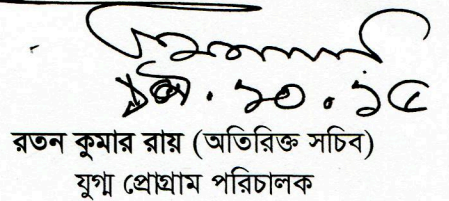 ২০.১৫
রতন কুমার রায় (অতিরিক্ত সচিব)
যুগ্ম প্রোগ্রাম পরিচালক